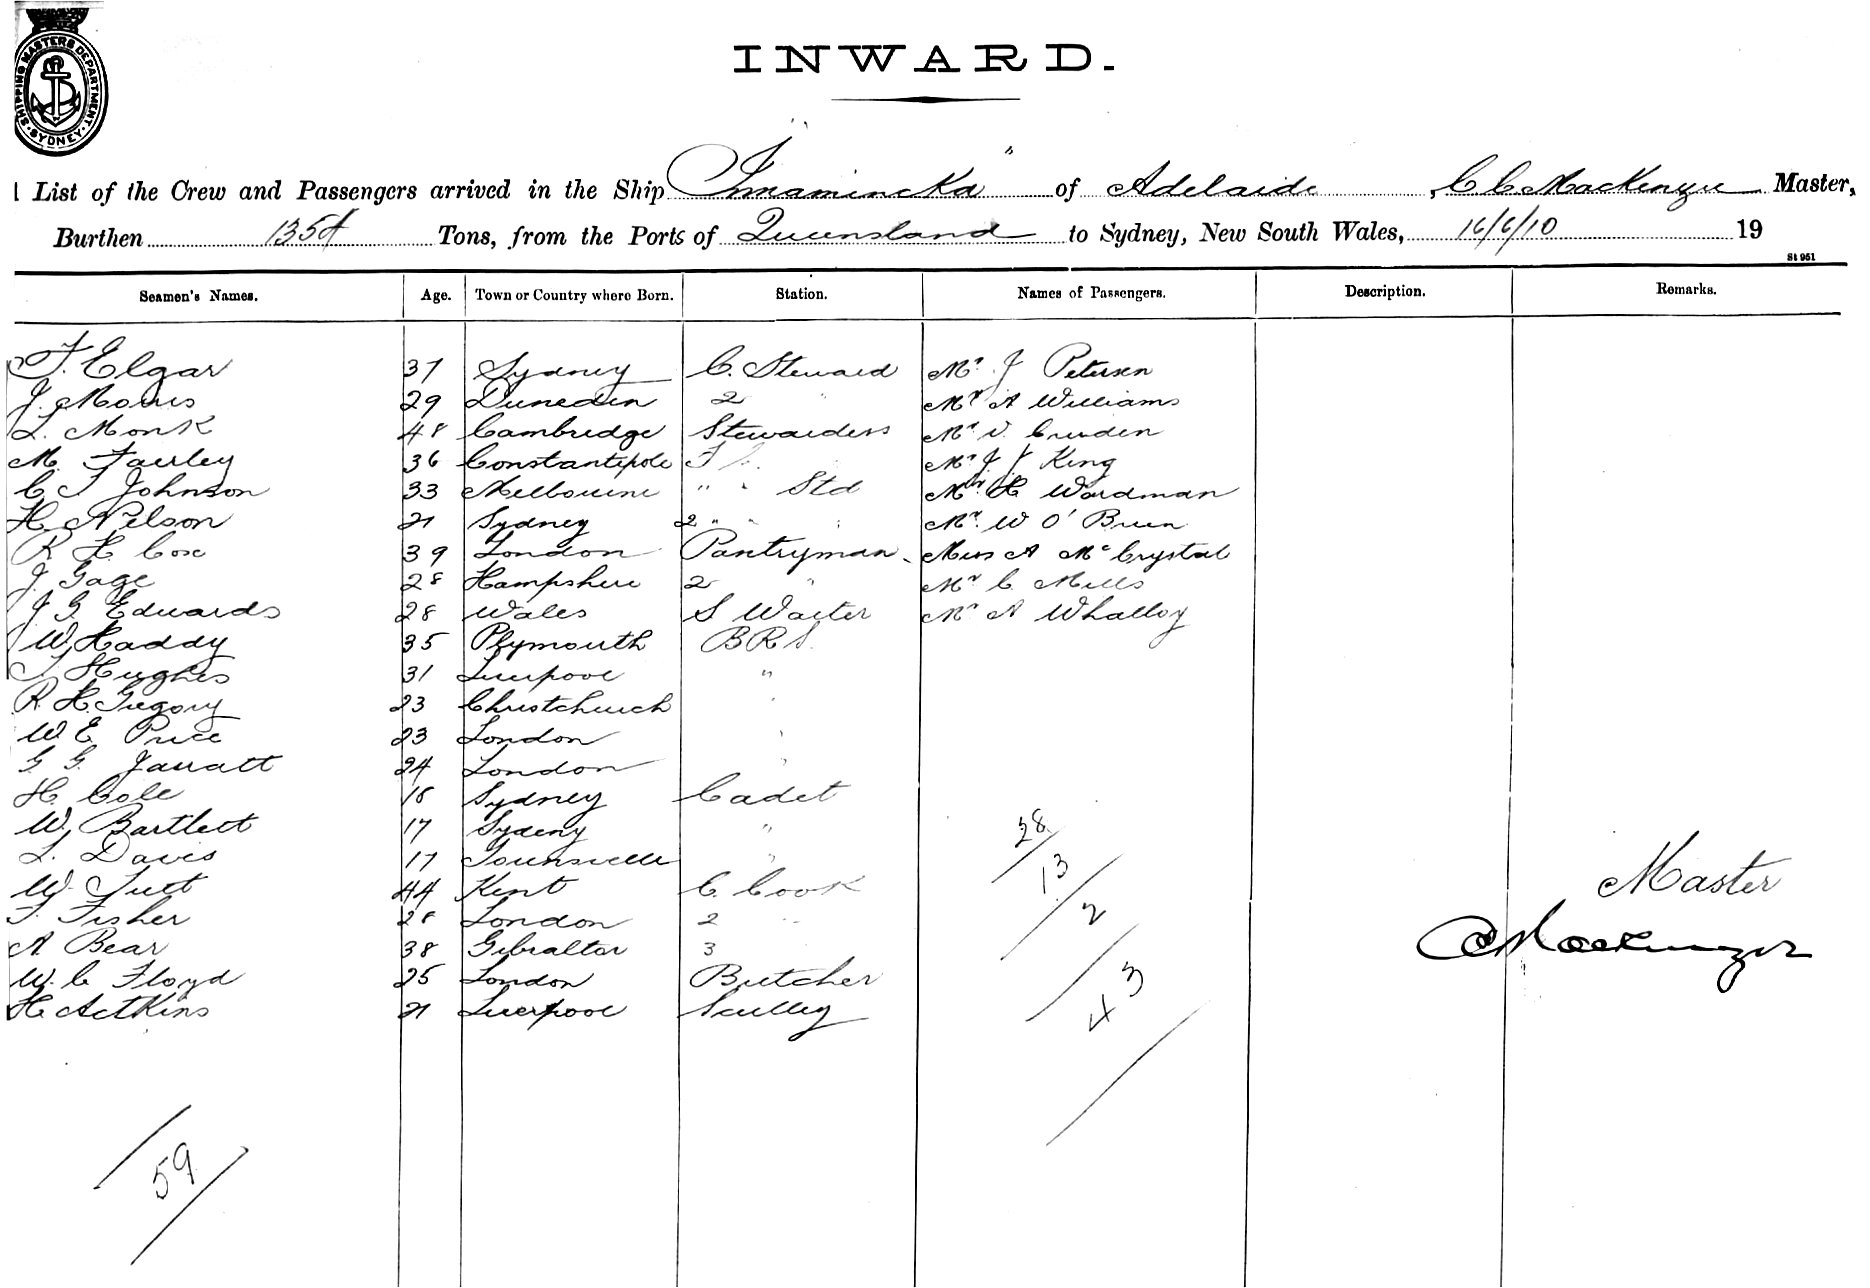 SHIPPING MASTERS DEPARTMENT. SYDNEY
INWARD.
List of the Crew and Passengers arrived in the Ship "Innamincka" of Adelaide, C C Mackenzie Master,
Burthen 1354 Tons, from the Ports of Queensland to Sydney, New South Wales, 16/6/10 19
St 951
Seamen's Names. Age. Town or Country where Born. Station. Names of Passengers. Description. Remarks.
F. Elgar 37 Sydney C. Steward Mr J Petersen
J. Morris 29 Dunedin 2 " Mr A Williams
L. Monk 48 Cambridge Stewardess Mr V. Cruden
M. Fairley 36 Constantipole F Mr J J King
C J Johnson 33 Melbourne " " Std Mr H Wardman
H. Nelson 21 Sydney 2 " " " Mr. W O'Brien
R H Cox 39 London Pantryman Miss A McCrystal
J Gage 28 Hampshire 2 " Mr C Mills
J G Edwards 28 Wales S Waiter Mr A Whalley
W Haddy 35 Plymouth B R S.
T Hughes 31 Liverpool "
R H Gregory 23 Christchurch "
W E Price 23 London "
G G Jarratt 24 London "
H. Cole 18 Sydney Cadet
W Bartlett 17 Sydeny "
L. Davis 17 Tounsville "
W Tutt 44 Kent C. Cook
T. Fisher 28 London 2 "
A Bear 38 Gibraltar 3
W. C Floyd 25 London Butcher
H. Aitkins 21 Liverpool Sculley
28
13
2
43
Master
CC Mackenzie
59